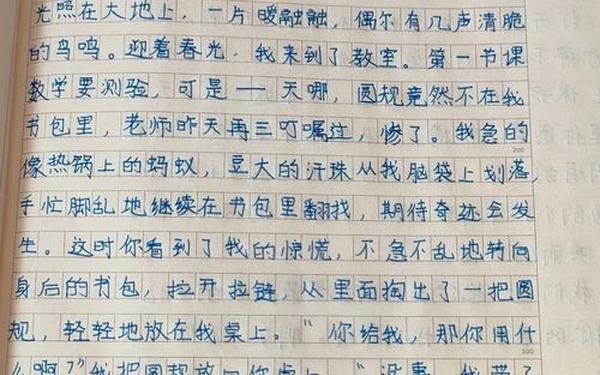 光照在大地上，一片暖融融，偶尔有几声清脆
的鸟鸣。迎着春光，我来到了教室。第一节课
数学要测验，可是——天哪，圆规竟然不在我
书包里，老师昨天再三叮嘱过，惨了。我急的
200
像热锅上的蚂蚁，豆大的汗珠从我脑袋上划落，
手忙脚乱地继续在书包里翻找，期待奇迹会发
生。这时你看到了我的惊慌，不急不乱地转向
身后的书包，拉开拉链，从里面掏出了一把圆
规，轻轻地放在我桌上。“你给我，那你用什
300
么啊？”我把圆规放回你桌上。“没事，我带了